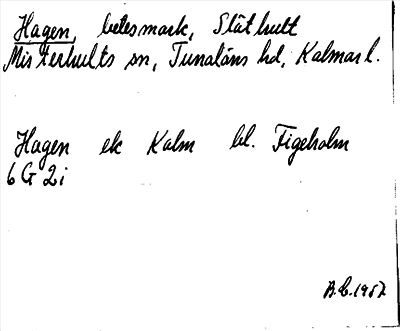 Hagen, betesmark, Släthult
Misterhults sn, Tunaläns hd, Kalmar l.
Hagen ek Kalm bl. Figeholm
6 G 2 i
1957